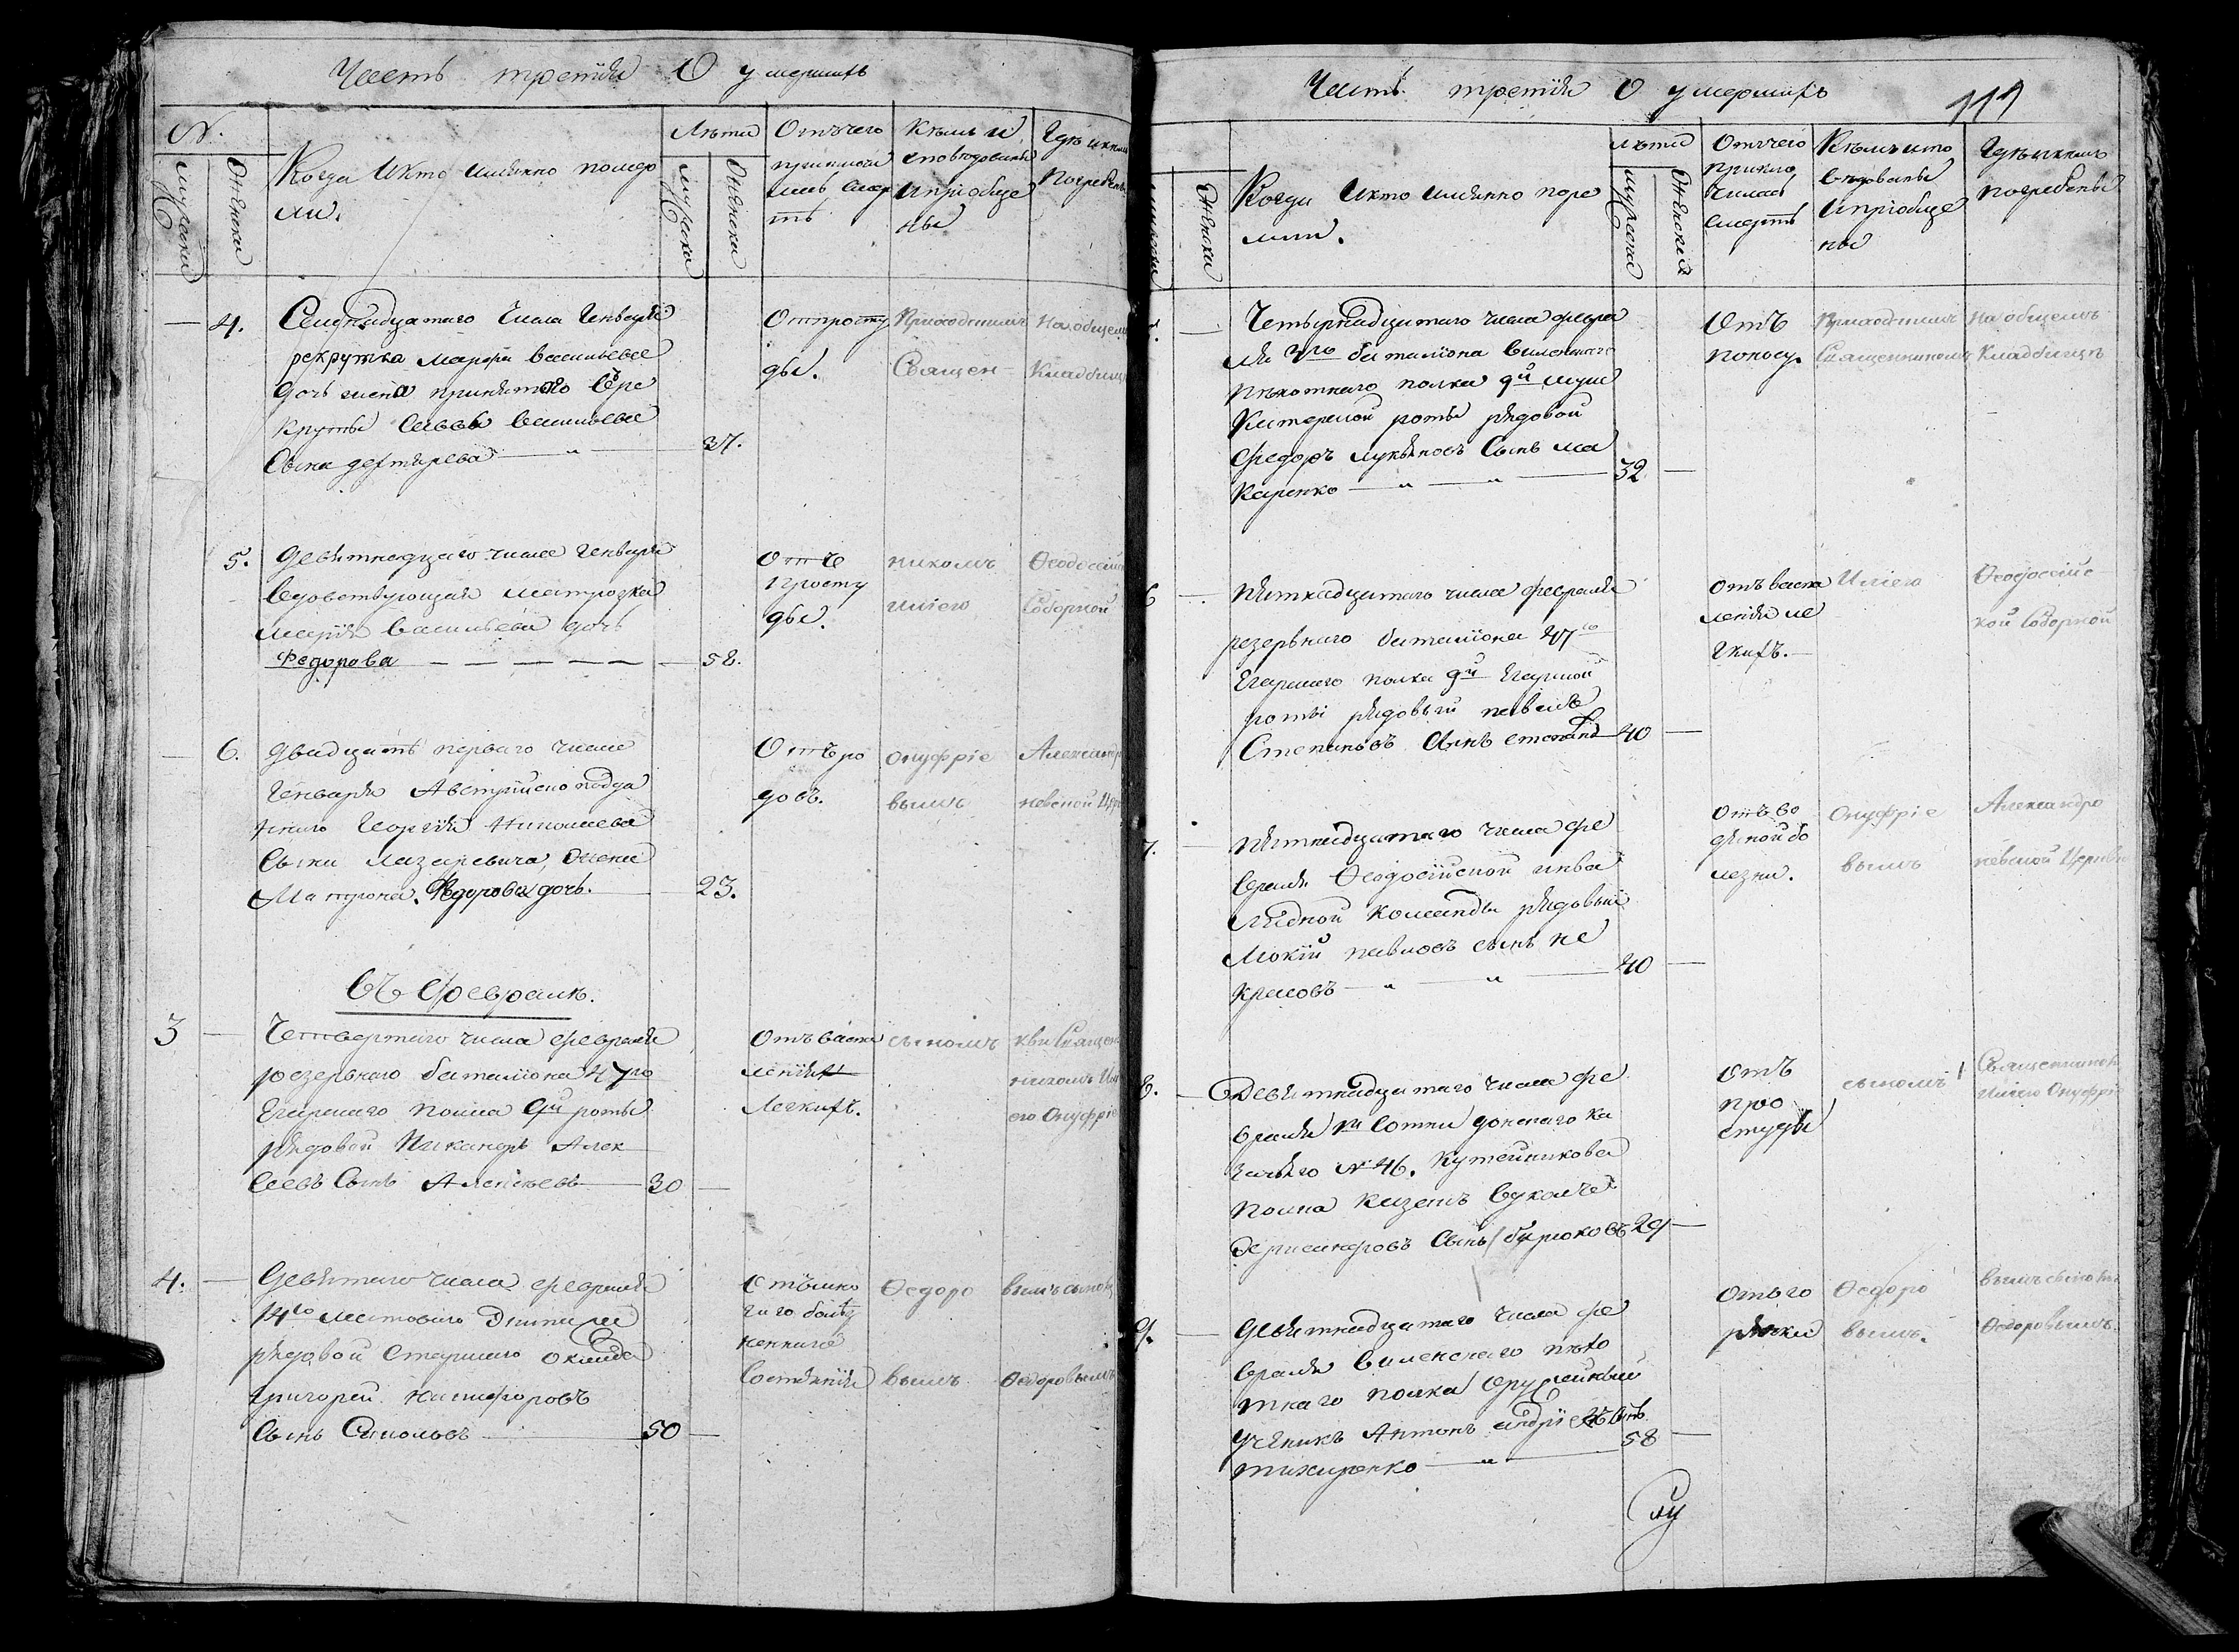 Часть третія О умершихъ
№.
мужеска
женска
Когда и кто имянно помер
ли.
Лѣта
мужеска
женска
Отъ чего
приключи
лась смер
ть
Кѣмъ и
сповѣдованы
и пріобще
ны
Гдѣ и кѣмъ
погребены
4.
Семнадцатаго числа Генваря
рекрутка марфа васильева
дочь жена принятаго въ ре
круты саввы васильева
сына дехтярева
37.
От просту
ды.
Приходскимъ
Священ-
На общемъ
Кладбищѣ
5.
Девятнадцаго числа Генваря
вдовствующая матрозка
марія васильева дочь
Федорова
58.
отъ
просту
ды.
никомъ
иліею
Ѳеодосійс
Соборной
6.
двадцать перваго числа
Генваря Австрійско подда
ннаго Георгія Николаева
сына Лазаревича, жена
Матрона. Федорова дочь.
23.
Отъ ро
довъ.
онуфріе
вымъ
Александро
невской Цер
Въ Февралѣ.
3
Четвертаго числа февраля
резервнаго баталіона 47го
Егарскаго полка 9й роты
рядовой Никаноръ Алек
сеевъ сынъ Алексѣевъ
30
отъ воспа
ленія
легкихъ.
сыномъ
кви Священ
никомъ Илі
ею Онуфріе
4.
Девятаго числа февраля
14го
рядовой
григорей никифоровъ
сынъ Соколовъ
50
Ѳедоро
вымъ
вымъ сыномъ
Ѳедоровымъ
Часть третія О умершихъ
111
мужеска
женска
Когда и кто имянно поме
рли.
лѣта
мужеска
женска
Отъ чего
приклю
чилась
смерть
Кѣмъ испо
вѣдованы
и пріобще
ны
Гдѣ и кѣмъ
погребены
Четырнадцатаго числа февра
ля 3го баталіона виленскаго
пѣхотнаго полка 9й муш
китерской роты рядовой
Федоръ лукьяновъ сынъ ма
каренко
32
Отъ
поносу.
Приходскимъ
Священникомъ
На общемъ
Кладбищѣ
6
Пятнадцатаго числа февраля
резервнаго баталіона 47го
Егарскаго полка 9й Егарской
роты рядовый павелъ
Степановъ сынъ
40
отъ воспа
ленія ле
гкихъ.
Иліею
Ѳеодосійс
кой Соборной
7.
Пятнадцатаго числа фе
враля Ѳеодосійской инва
лидной команды рядовый
Мокій павловъ сынъ не
красовъ
40
отъ во
дяной бо
лезни.
Онуфріе
вымъ
Александро
невской Церкви
8.
Девятнадцатаго числа фе
враля 1й сотни донскаго ка
зачьяго №46. Кутейникова
полка казакъ
сынъ бирюковъ
29
отъ
про
студы
сыномъ
Священникомъ
Иліею Онуфріе
9.
Девятнадцатаго числа фе
враля Виленскаго пѣхо
тнаго полка оружейный
ученикъ Антонъ андріевъ сынъ
58
отъ го
рячки
Ѳедоро
вымъ.
вымъ сыномъ
Ѳедоровымъ